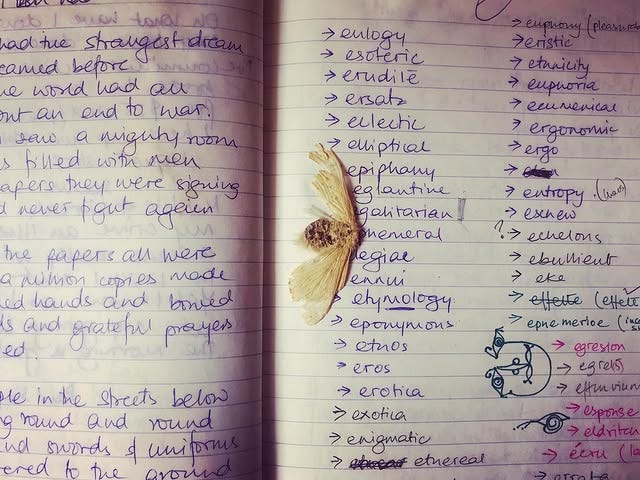 had the strangest dream
eamed before
e world had all
ont an end to war.
saw a mighty room
s filled with men
apers they were signing
d never fight again
the papers all were
a million copies made
ed hands and bowed
ds and grateful prayers
ed.
ple in the streets below
ng round and round
nd swords & uniforms
ered to the ground
→ eulogy
→ esoteric
→ erudite
→ ersatz
→ eclectic
→ elliptical
epiphany
eglantine
galitarian
hemeral
legiac
ennui
etymology
→ eponymous
→ etnos
→ eros
→ erotica
→ exotica
→ enigmatic
→ ethereal
→ euphony (pleasurab
→ eristic
→ ethnicity
→ euphoria
→ ecumenical
→ ergonomic
→ ergo
→ entropy
→ eschew
? → echelons
→ ebullient
→ eke
→ effette
→ epnemerloe
→ egression
→ egrets
→ effluvium
→ esponse
→ eldritch
→ écru (la
→ errata